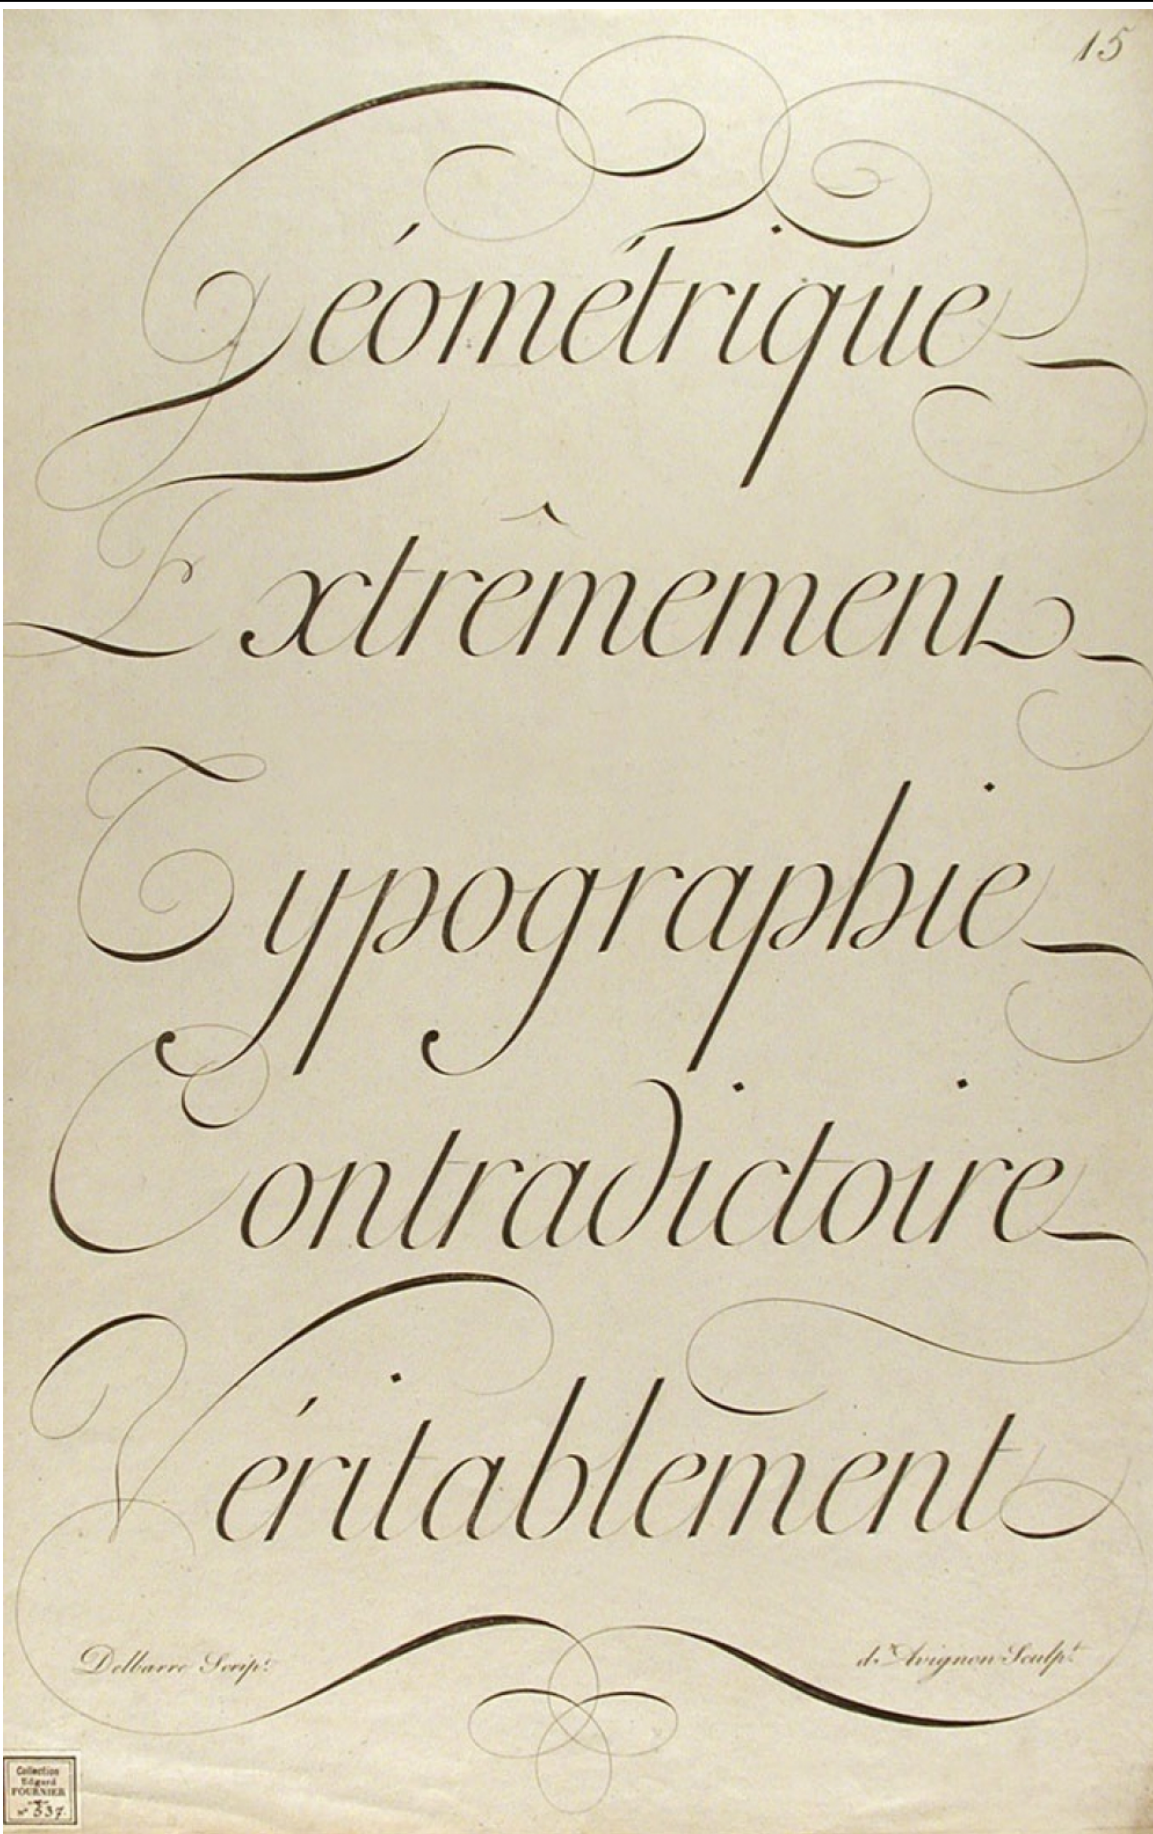 15
Géométrique
Extrêmement
Typographie
Contradictoire
Véritablement
Delbarre Script.
d'Avignon Sculpt.
Collection
Edgard
FOURNIER
n° 337